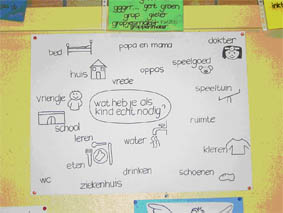 gent groen
grap
papa en mama
dokter
bed
speelgoed
huis
oppas
vrede
vriendje
wat heb je als
kind echt nodig?
speeltuin
ruimte
school
leren
water
kleren
eten
drinken
schoenen
wc
ziekenhuis